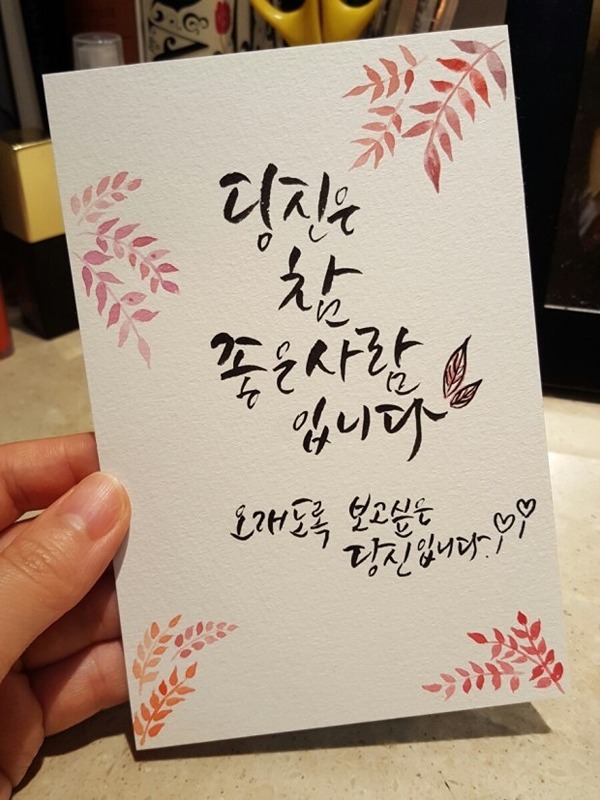 당신은
참
좋은사람
입니다
오래도록 보고싶은
당신입니다.